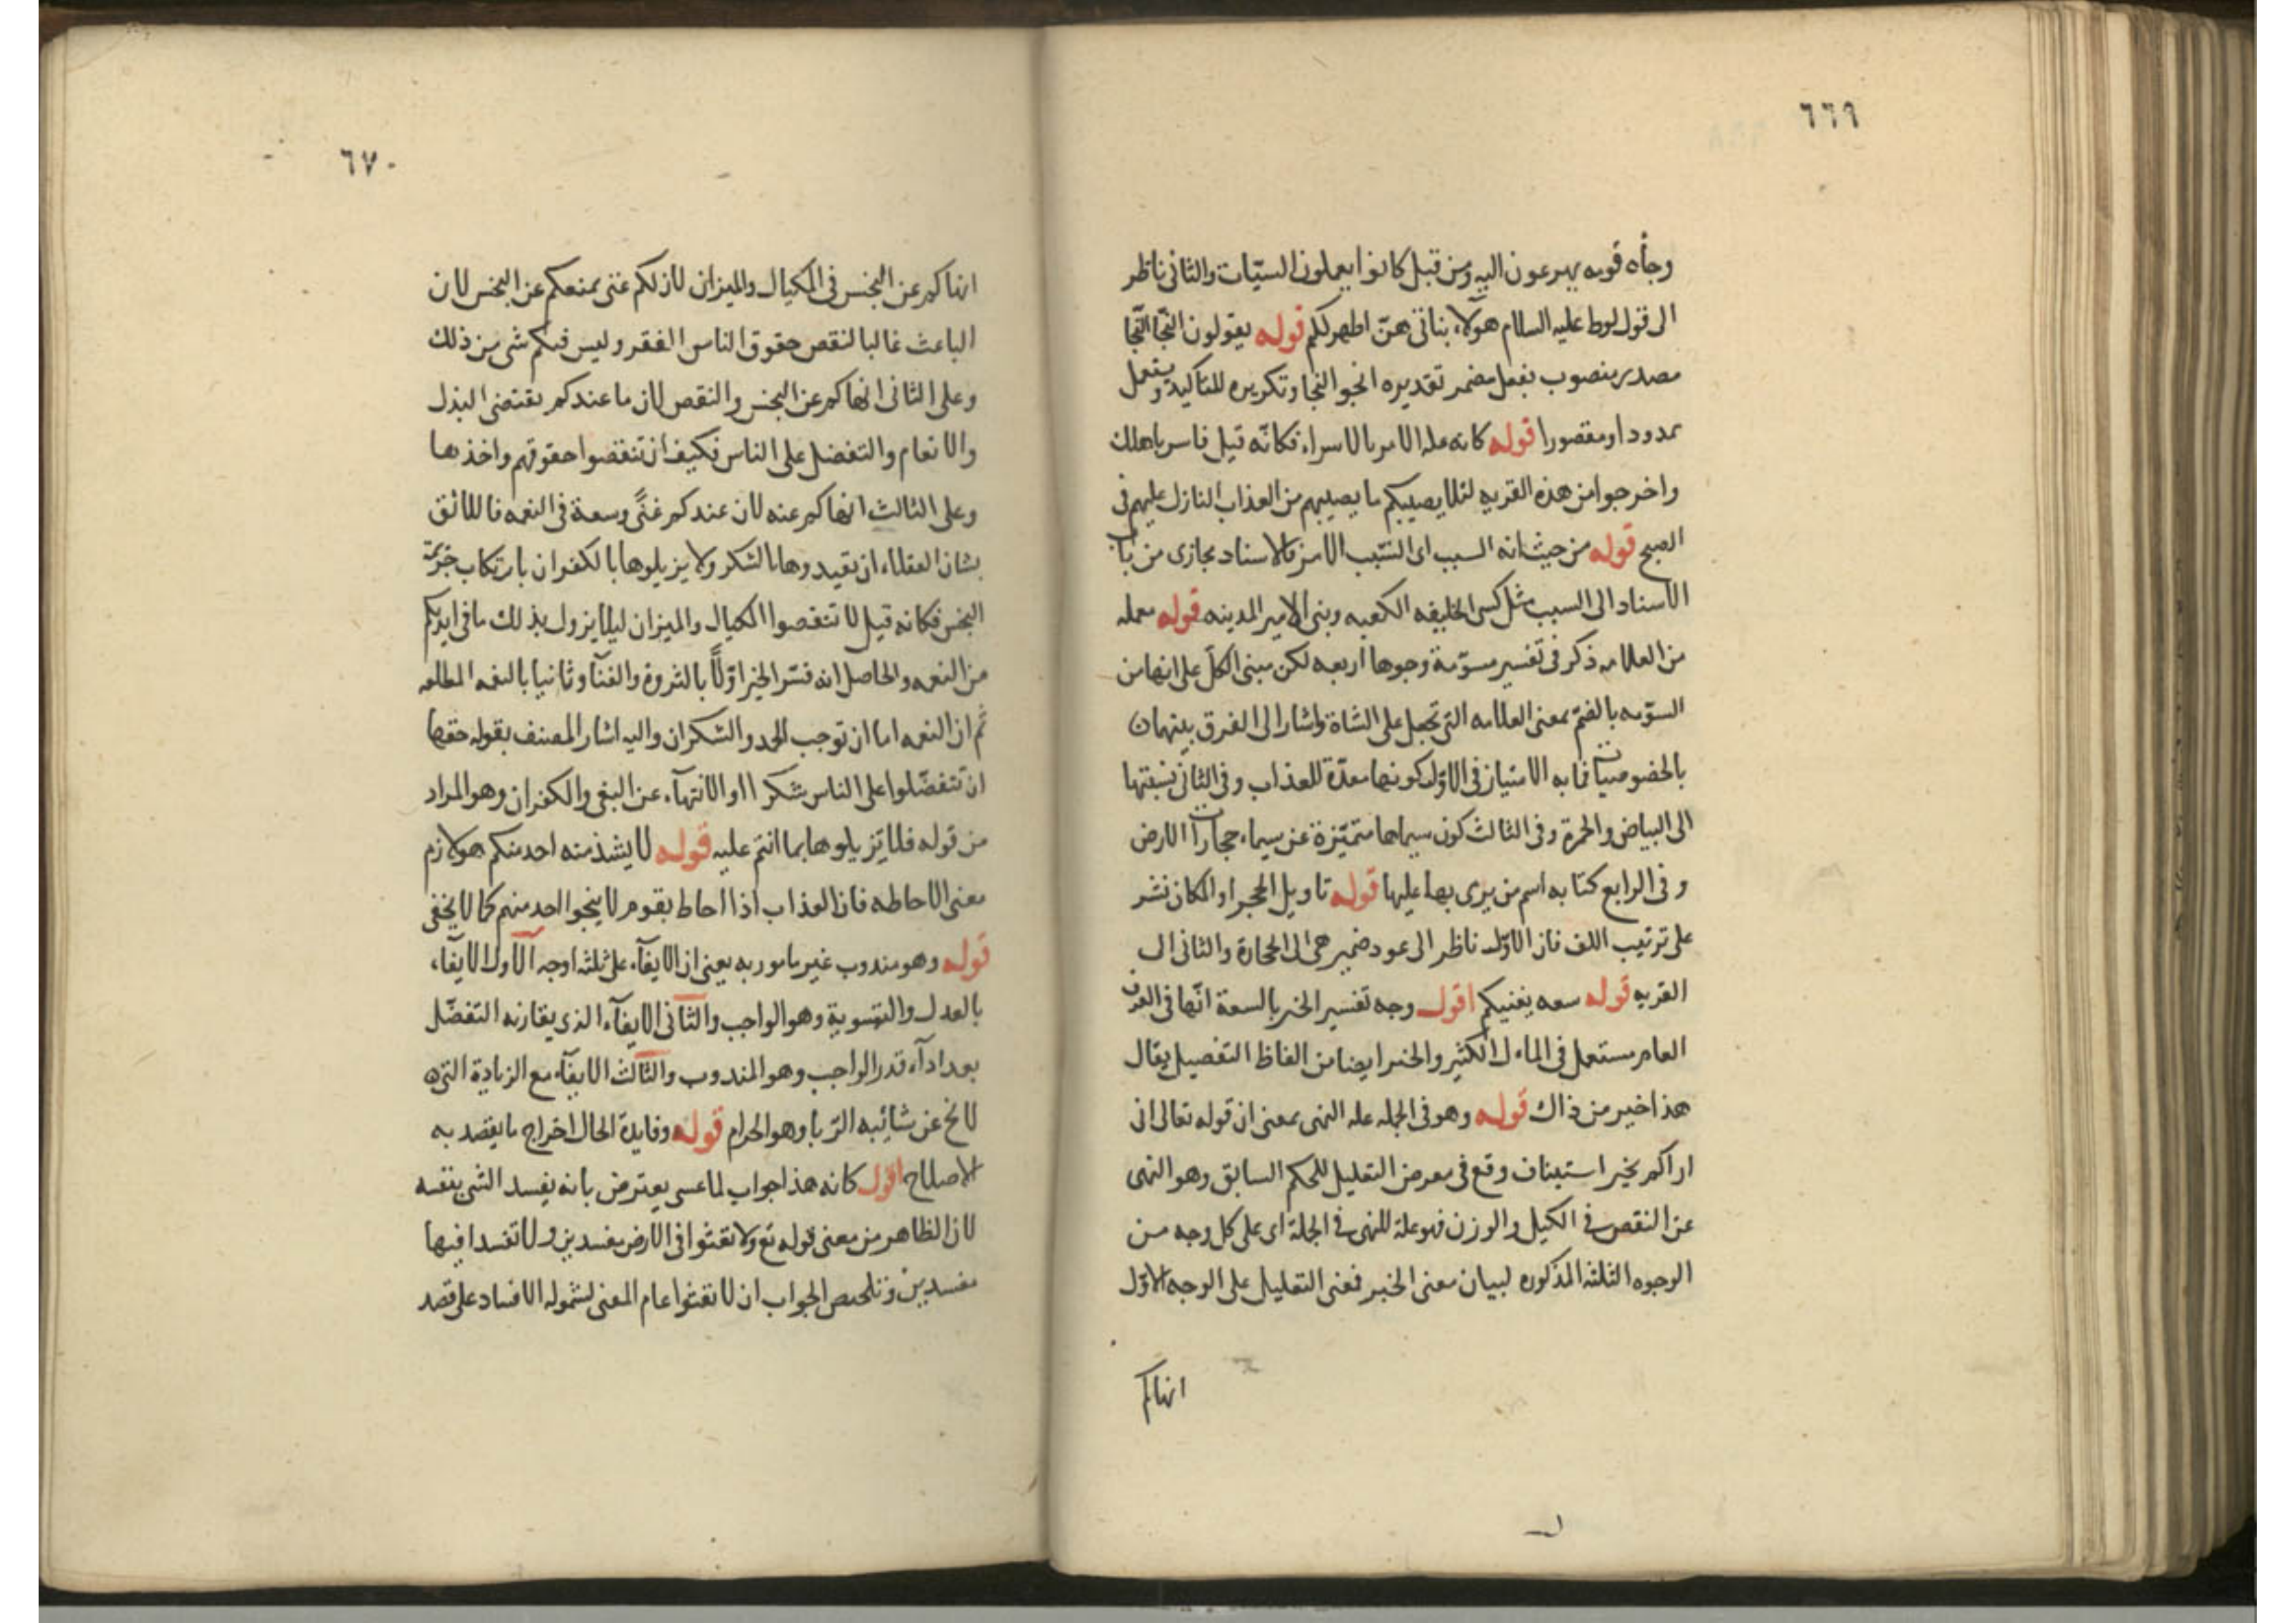 ٦٦٩
وجاه قومه يهرعون اليه ومن قبل كانوا يعملون السيّات والثانى ناظر
الى قول لوط عليه السلام هولآء بناتى هنّ اطهر لكم قوله يقولون النجّا النجّا
مصدر منصوب بفعل مضمر تقديره انجو النجا وتكريره للتاكيد ويستعمل
ممدودا ومقصورا قوله كانه علة الامر بالاسراء فكانّه قيل فاسر باهلك
واخرجوا من هذه القرية لئلا يصيبكم ما يصيبهم من العذاب النازل عليهم فى
الصبح قوله من حيث انه السبب اى المسبّب الامر فالاسناد مجازى من باب
الاسناد الى السبب مثل كسى الخليفه الكعبه وبنى الامير المدينه قوله معلمه
من العلامه ذكر فى تفسير مسوّمة وجوها اربعه لكن مبنى الكلّ على انها من
السوّمه بالضمّ بمعنى العلامه التى تجعل على الشاة واشار الى الفرق بينهما
بالخصوصيات فما به الامتياز فى الاوّل كونها معدّة للعذاب وفى الثانى نسبتها
الى البياض والحمرة وفى الثالث كون سيماها متميّزة عن سيماء حجارات الارض
وفى الرابع كتابه اسم من يرمى بها عليها قوله تاويل الحجر او المكان نشر
على ترتيب اللف فان الاوّل ناظر الى عود ضمير هى الى الحجارة والثانى الى
القريه قوله سعه يغنيكم اقول وجه تفسير الخير بالسعة انّها فى العرف
العام مستعمل فى المال الكثير والخير ايضا من الفاظ التفضيل يقال
هذا خير من ذاك قوله وهو فى الجمله علة النهى بمعنى ان قوله تعالى انى
اراكم بخير استيناف وقع فى معرض التعليل للحكم السابق وهو النهى
عن النقص فى الكيل والوزن فهو علة للنهى فى الجملة اى على كل وجه من
الوجوه الثلثه المذكوره لبيان معنى الخير فمعنى التعليل على الوجه الاوّل
انهاكم
٦٧٠
انهاكم عن البخس فى المكيال والميزان لان لكم غنى يمنعكم عن البخس لان
الباعث غالبا لنقص حقوق الناس الفقر وليس فيكم شى من ذلك
وعلى الثانى انهاكم عن البخس والنقص لان ما عندكم يقتضى البذل
والانعام والتفضل على الناس فكيف ان تنقصوا حقوقهم واخذها
وعلى الثالث انهاكم عنه لان عندكم غنىً وسعة فى النعمه فاللائق
بشان العقلاء ان يقيدوها بالشكر ولا يزيلوها بالكفران بارتكاب جريمة
البخس فكانه قيل لا تنقصوا المكيال والميزان ليلا يزول بذلك ما فى ايديكم
من النعمه والحاصل انه فسّر الخير اوّلاً بالثروة والغنآ وثانيا بالنعمه المطلقه
ثم ان النعمه اما ان توجب الحمد والشكران واليه اشار المصنف بقوله حقها
ان تتفضّلوا على الناس شكرا او الانتهآء عن البغى والكفران وهو المراد
من قوله فلا تزيلوها بما انتم عليه قوله لا يشذ منه احد منكم هو لازم
معنى الاحاطه فان العذاب اذا احاط بقوم لا ينجوا احد منهم كما لا يخفى
قوله وهو مندوب غير مامور به يعنى ان الايفآء على ثلثه اوجه الاول الايفاء
بالعدل والتسوية وهو الواجب والثانى الايفآء الذى يقارنه التفضّل
بعد ادآء قدر الواجب وهو المندوب والثالث الايفآء مع الزيادة التى
لا تخ عن شائبه الرّبا وهو الحرام قوله وفايدة الحال اخراج ما يقصد به
الاصلاح اقول كانه هذا جواب لما عسى يعترض بانه يفسد الشى بنفسه
لان الظاهر من معنى قوله تع ولا تعثوا فى الارض مفسدين ولا تفسدا فيها
مفسدين وتلخيص الجواب ان لا تعثوا عام المعنى لشموله الافساد على قصد